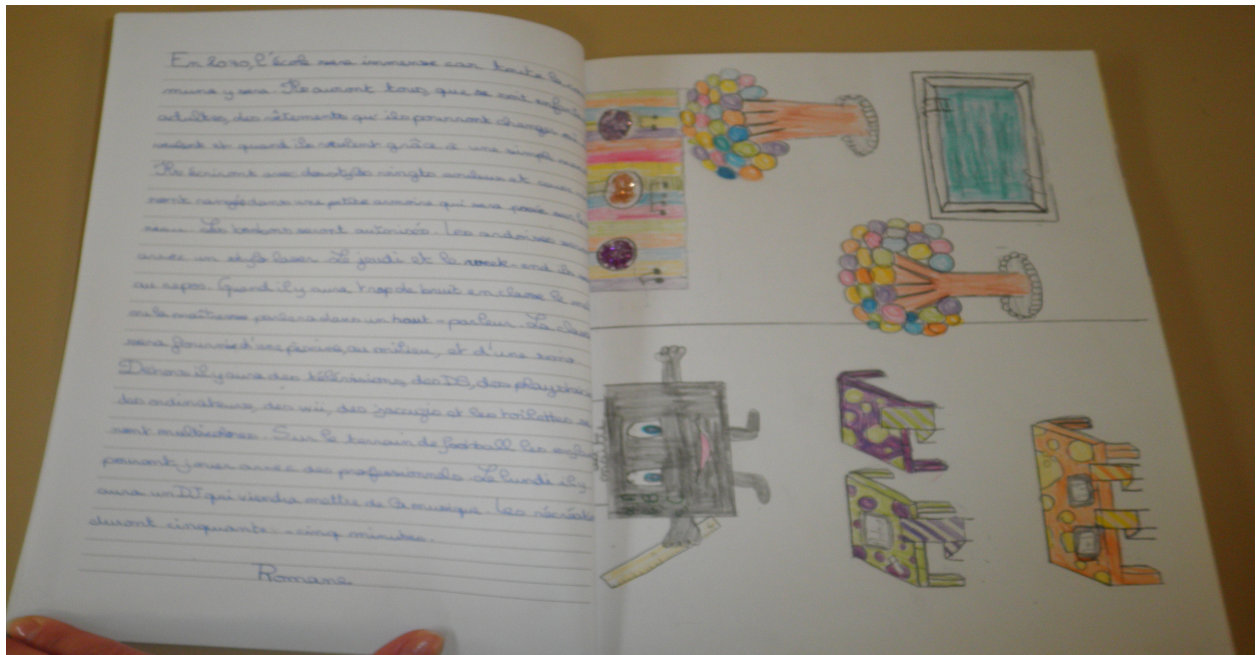 En 2070, l'école sera immense car toute la com
mune y sera. Ils auront tous, que se soit enfants
adultes, des vêtements qu'ils pourront changer
veulent et quand ils veulent grâce à une simple
Ils écriront avec des stylos vingts couleurs et
ront rangés dans une petite armoire qui sera posée sur
Les bonbons seront autorisés. Les ardoises
avec un stylo laser. Le jeudi et le week-end ils
au repos. Quand il y aura trop de bruit en classe le
ou la maîtresse parlera dans un haut-parleur. La classe
sera fournie d'une piscine, au milieu, et d'une
Dehors il y aura des télévisions, des DS, des
des ordinateurs, des wii, des jaccugis et les toilettes se
ront multicolores. Sur le terrain de football les
pouront jouer avec des professionnels. Le lundi il y
aura un DJ qui viendra mettre de la musique. Les
duront cinquante-cinq minutes.
Romane